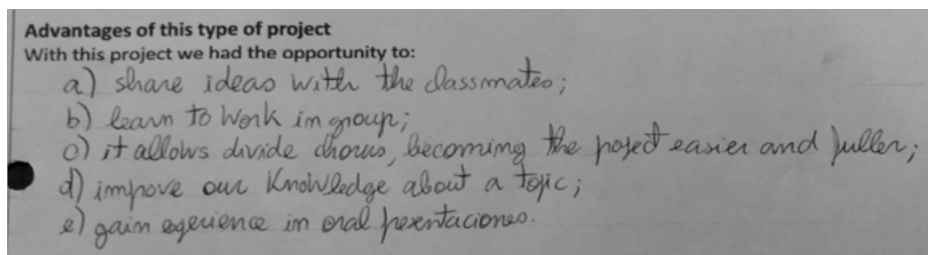 Advantages of this type of project
With this project we had the opportunity to:
a) share ideas with the classmates;
b) learn to work in group;
c) it allows divide chorus, becoming the poject easier and fuller;
d) improve our knowledge about a topic;
e) gain egerience in oral presentaciones.